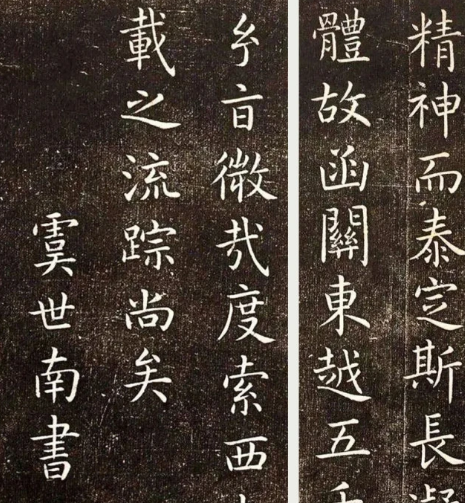 精神而泰定斯長凝
體故函關東越五千
旨微哉度索西
載之流踪尚矣
虞世南書